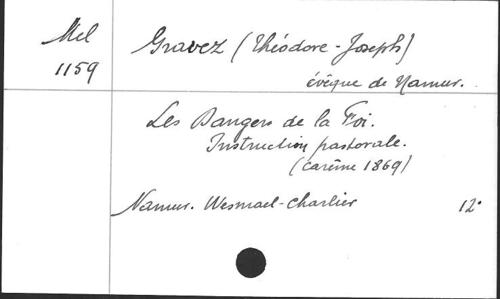 Mel
1159
Gravez (Théodore-Joseph)
évêque de Namur.
Les Dangers de la Foi.
Instruction pastorale.
(carême 1869)
Namur. Wesmael-Charlier 12°